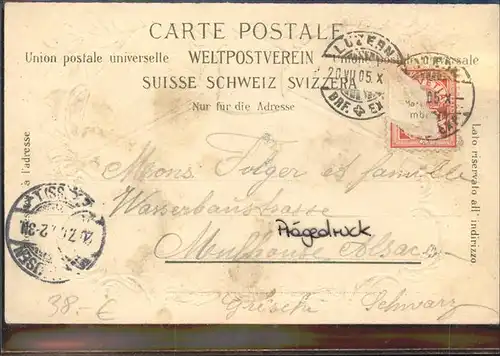 CARTE POSTALE
Union postale universelle WELTPOSTVEREIN Unione postale universale
SUISSE SCHWEIZ SVIZZERA
Nur für die Adresse
à l'adresse
Lato riservato all'indirizzo
LUZERN
20 VII 05. X
BRF. EX
05. X
Mons. Folger et famille
Wasserbaustrasse
Prägedruck
Mulhouse Alsace
38.- €
Schwarz